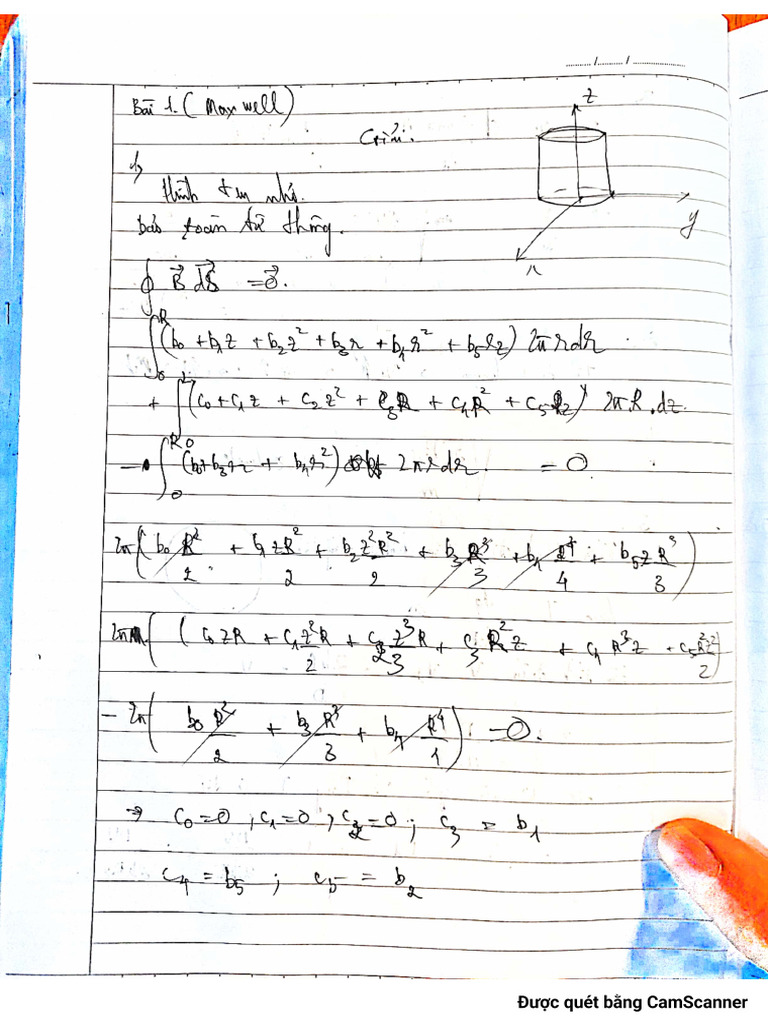 Bài 1. (Maxwell)
Giải.
z
1)
Hình trụ nhỏ.
bảo toàn từ thông.
y
x
∮ B⃗ dS⃗ = 0⃗.
∫₀ᴿ (b₀ + b₁z + b₂z² + b₃r + b₄r² + b₅rz) 2πrdr
+ ∫₀ (c₀ + c₁z + c₂z² + c₃R + c₄R² + c₅Rz) 2πR.dz
- ∫₀ᴿ (b₀ + b₃r + b₄r²) 2πrdr = 0
2π( b₀ R²/2 + b₁ zR²/2 + b₂ z²R²/2 + b₃ R³/3 + b₄ R⁴/4 + b₅ z R³/3 )
2π ( c₀ zR + c₁ z²R/2 + c₂ z³R/3 + c₃ R²z + c₄ R³z + c₅ R²z²/2 )
- 2π( b₀ R²/2 + b₃ R³/3 + b₄ R⁴/4 ) = 0.
→ c₀ = 0 , c₁ = 0 , c₂ = 0 ; c₃ = b₁
c₄ = b₅ ; c₅ = b₂
Được quét bằng CamScanner